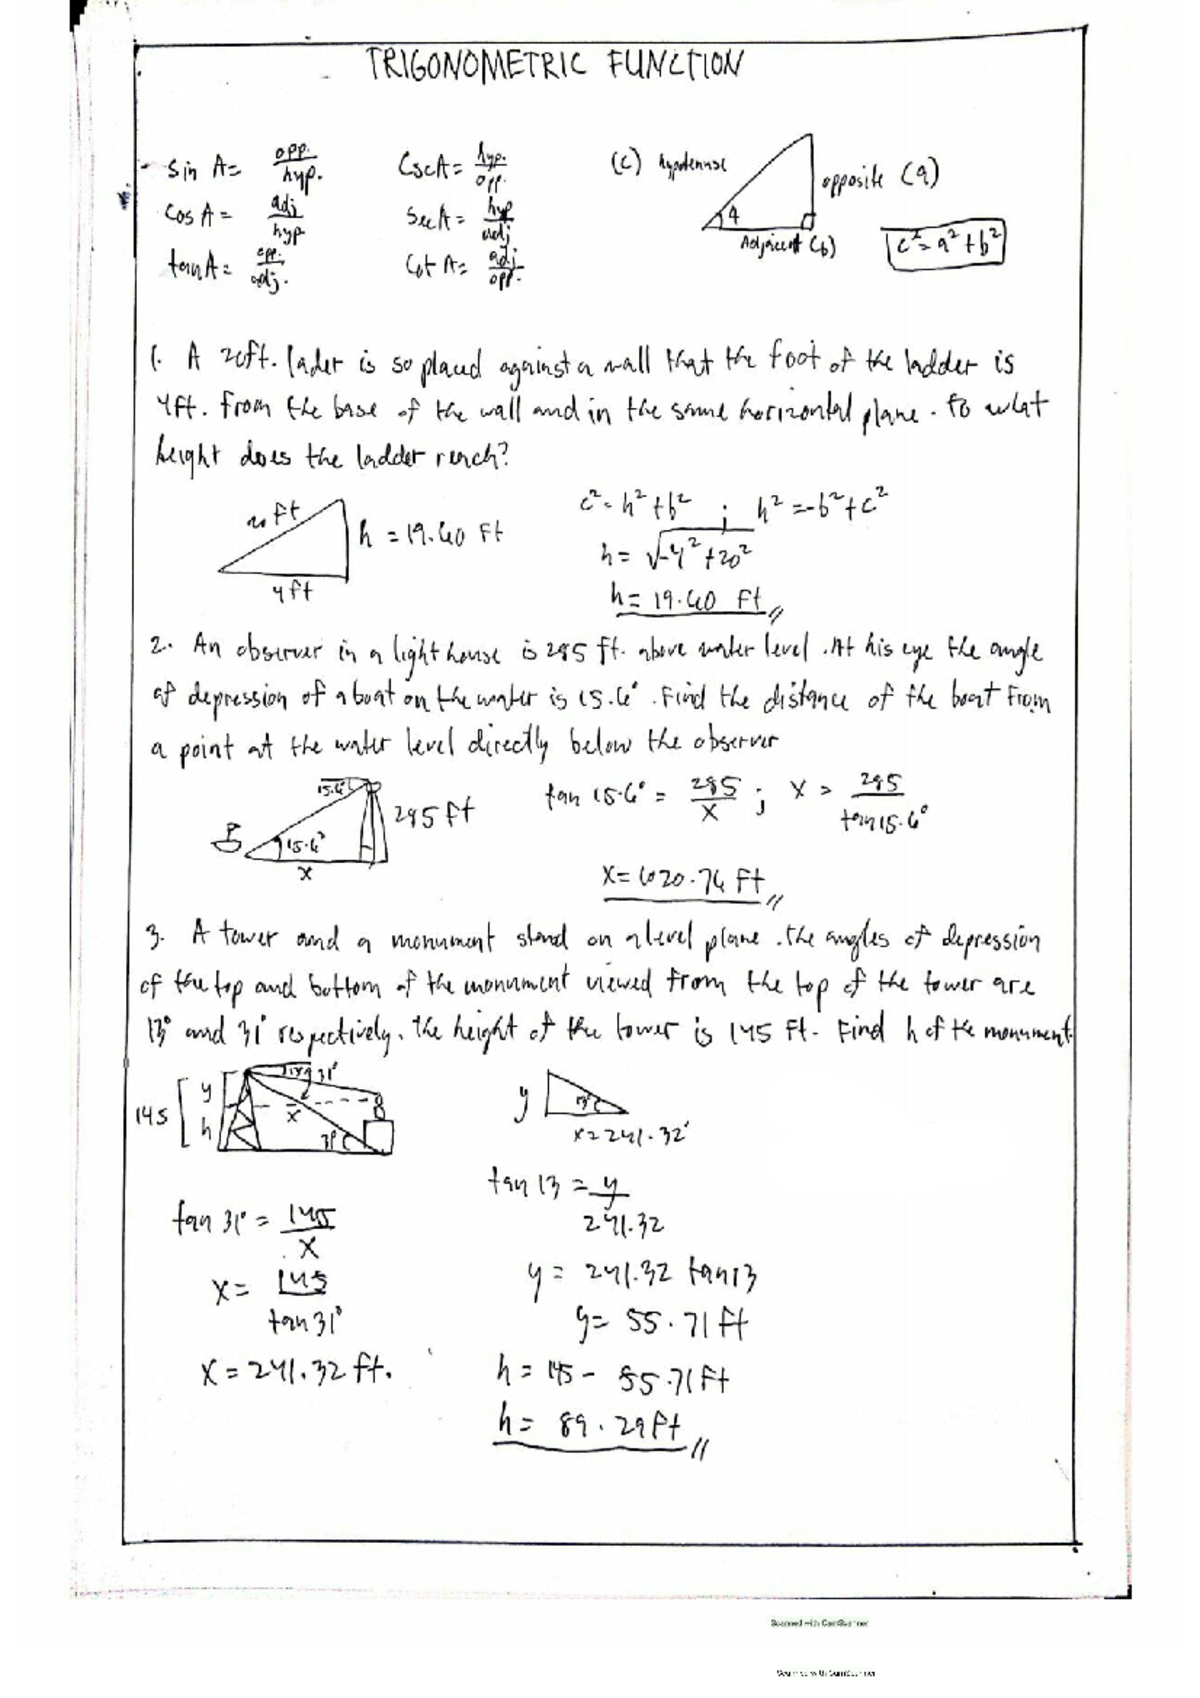 TRIGONOMETRIC FUNCTION
sin A = opp./hyp. Csc A = hyp./opp. (c) hypotenuse opposite (a)
Cos A = adj/hyp Sec A = hyp/adj A Adjacent (b) c² = a² + b²
tan A = opp./adj. Cot A = adj/opp.
1. A 20ft. lader is so placed against a wall that the foot of the ladder is
4ft. from the base of the wall and in the same horizontal plane. to what
height does the ladder reach?
20 ft h = 19.60 ft c² = h² + b² ; h² = -b² + c²
4ft h = √-4² + 20²
h = 19.60 ft
2. An observer in a light house is 285 ft. above water level. At his eye the angle
of depression of a boat on the water is 15.6°. Find the distance of the boat from
a point at the water level directly below the observer
15.6° 285 ft tan 15.6° = 285/x ; x = 285/tan 15.6°
15.6°
x x = 1020.76 ft
3. A tower and a monument stand on a level plane. the angles of depression
of the top and bottom of the monument viewed from the top of the tower are
13° and 31° respectively. the height of the tower is 145 ft. Find h of the monument.
145 y h 13° 31° x 31° y 13° x = 241.32'
tan 13 = y/241.32
tan 31° = 145/x
y = 241.32 tan 13
x = 145/tan 31°
y = 55.71 ft
x = 241.32 ft. h = 145 - 55.71 ft
h = 89.29 ft
Scanned with CamScanner
Scanned with CamScanner